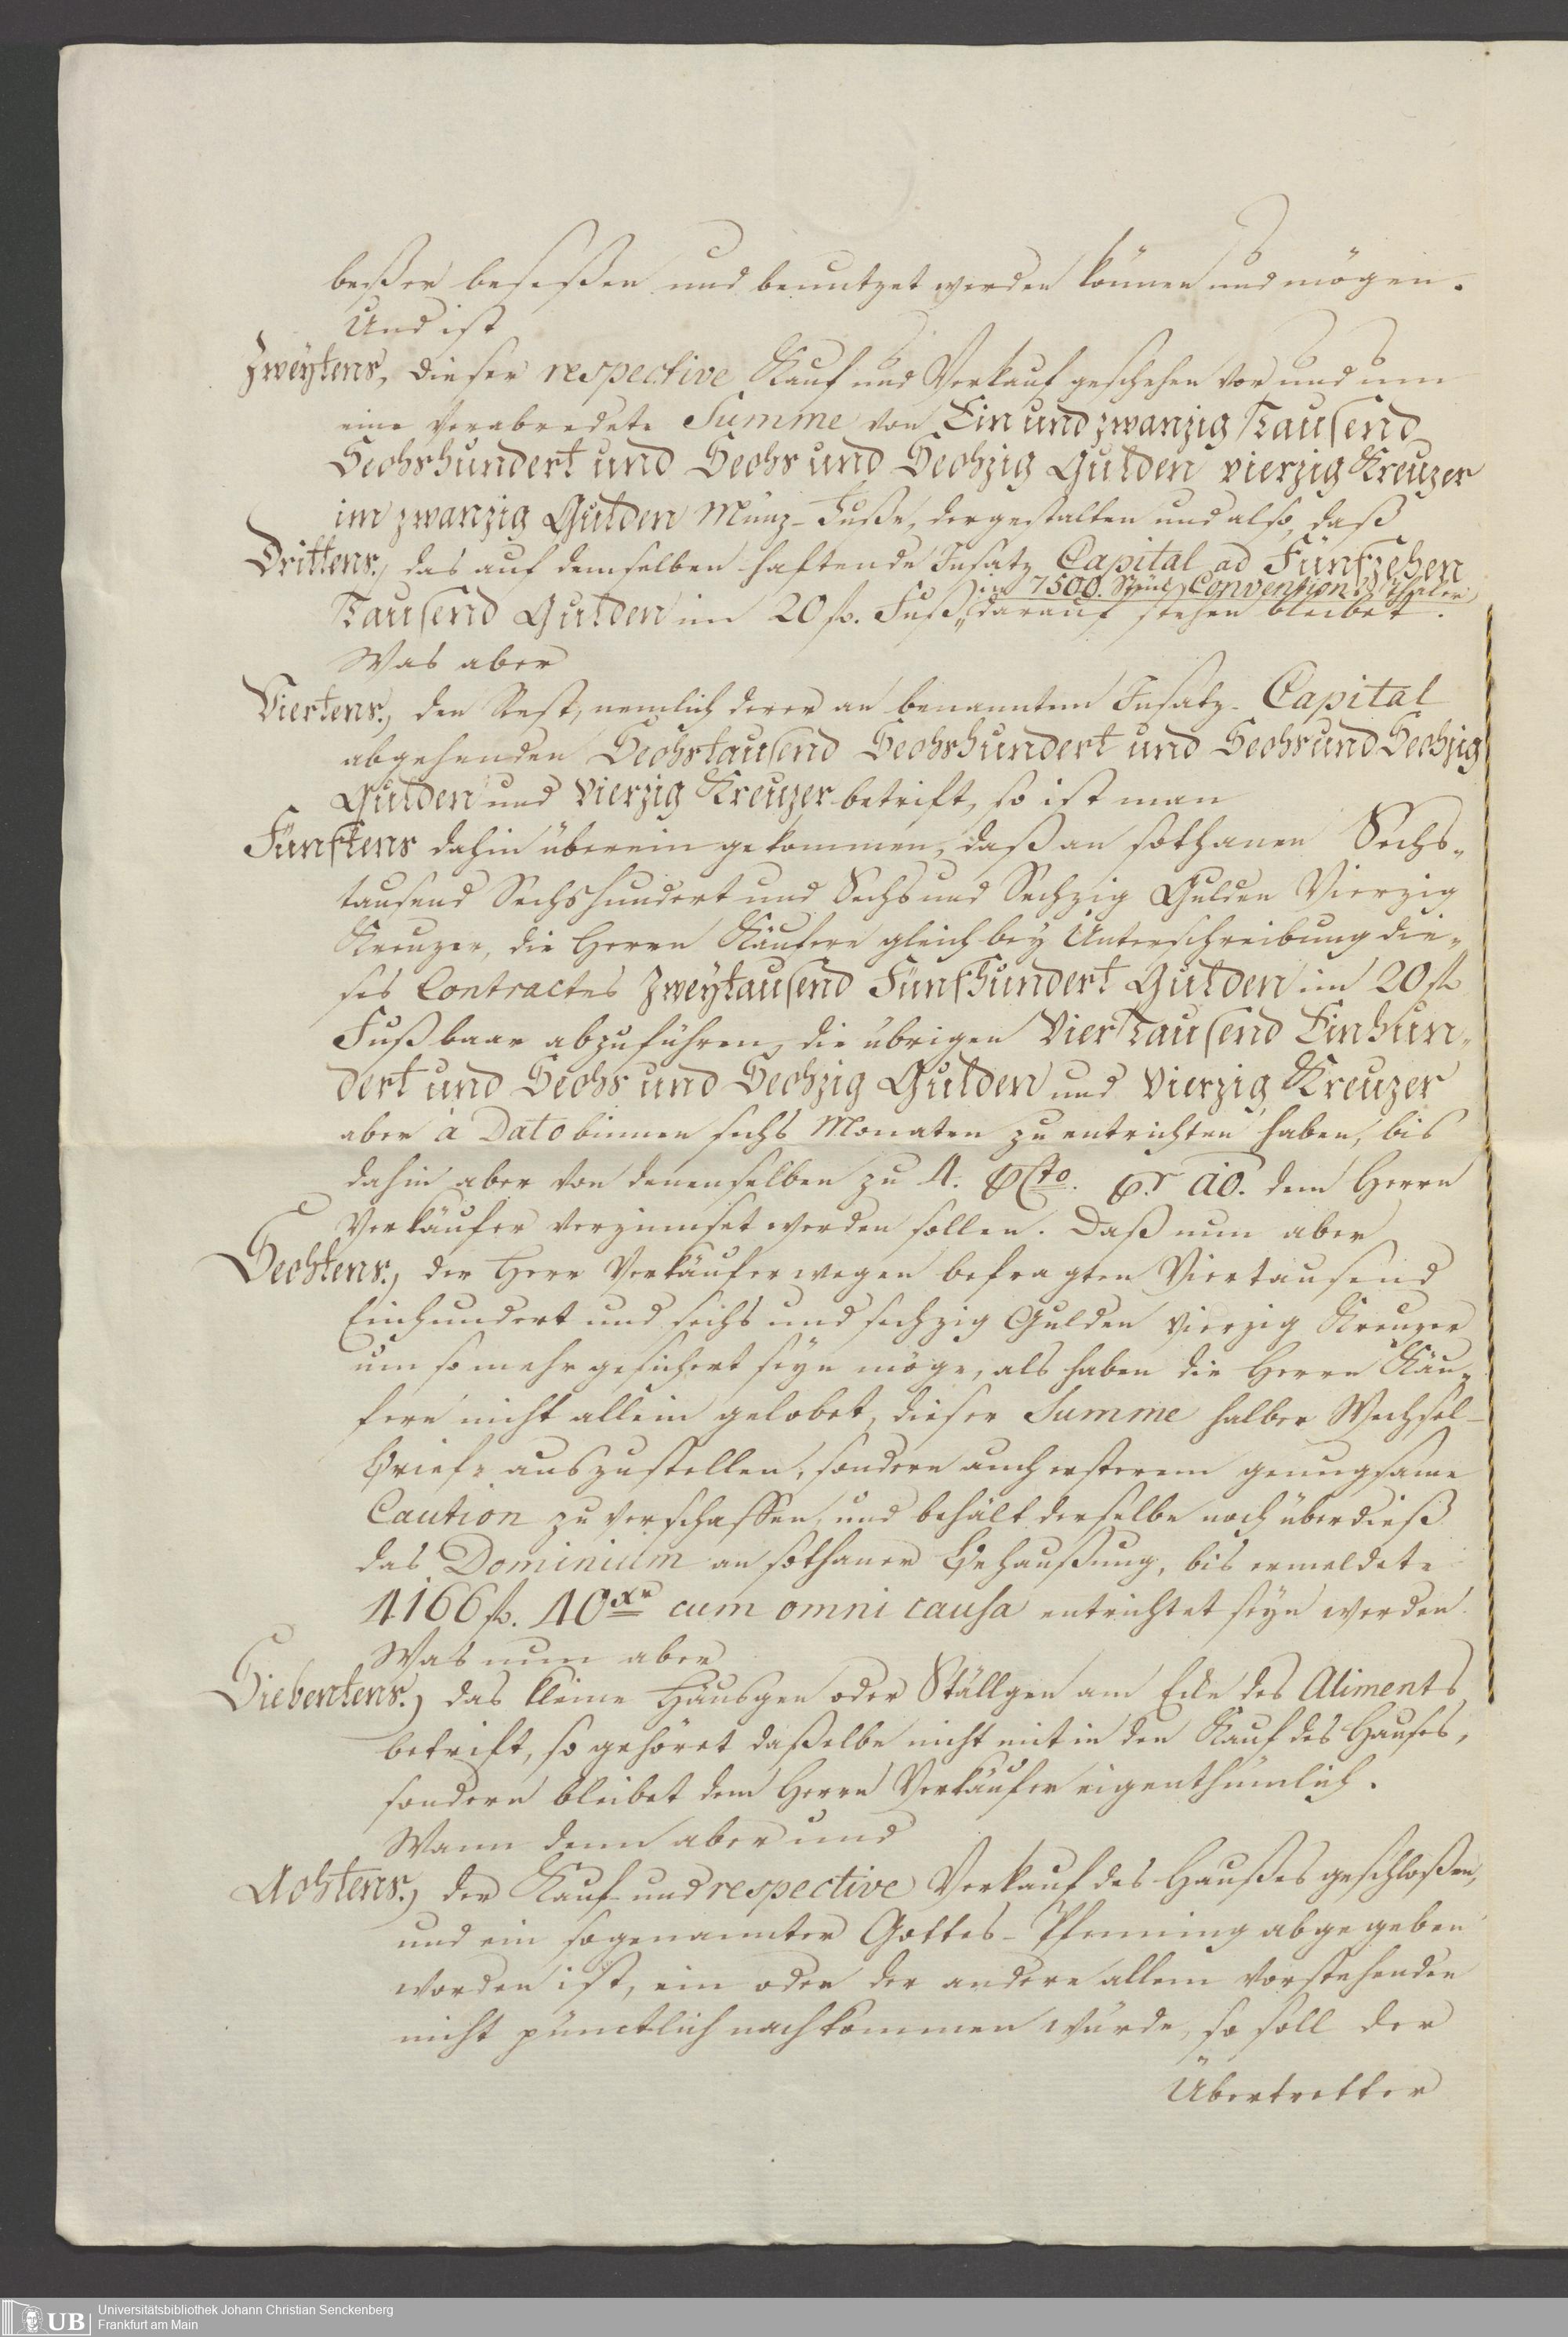 beßer beseßen und benutzet werden können und mögen.
Und ist
Zweytens, dieser respective Kauf und Verkauf geschehen vor und um
eine verabredete Summe von Ein und zwanzig Tausend
Sechshundert und Sechs und Sechzig Gulden vierzig Kreuzer
im zwanzig Gulden Münz-Fuße, dergestalten und also, daß
Drittens, das auf demselben haftende Insatz Capital ad Fünfzehen
in 7500. Stück Conventions Thaler
Tausend Gulden im 20 fl. Fuß, darauf stehen bleibet.
Was aber
Viertens, den Rest, nemlich derer an benanntem Insatz-Capital
abgehenden Sechstausend Sechshundert und Sechs und Sechzig
Gulden und Vierzig Kreuzer betrift, so ist man
Fünftens dahin überein gekommen, daß an sothanen Sechs-
tausend Sechshundert und Sechs und Sechzig Gulden Vierzig
Kreuzer, die Herrn Käufere gleich bey Unterschreibung die-
ses Contractes Zweytausend Fünfhundert Gulden im 20 fl
Fuß baar abzuführen, die übrigen Vier Tausend Einhun-
dert und Sechs und Sechzig Gulden und Vierzig Kreuzer
aber à Dato binnen sechs Monaten zu entrichten haben, bis
dahin aber von denenselben zu 4. pCto. pr. ao. dem Herrn
Verkäufer verzinnset werden sollen. Daß nun aber
Sechstens, der Herr Verkäufer wegen besagten Viertausend
Einhundert und sechs und sechzig Gulden vierzig Kreuzer
um so mehr gesichert seyn möge, als haben die Herrn Käu-
fere nicht allein gelobet, dieser Summe halber Wechsel-
Briefe auszustellen, sondern auch ersterem genugsame
Caution zu verschaffen, und behält derselbe noch überdieß
das Dominium an sothaner Behaußung, bis ermeldete
4166 fl. 40 xr cum omni causa entrichtet seyn werden.
Was nun aber
Siebentens, das kleine Häusgen oder Ställgen am Ecke des Aliments
betrift, so gehöret daßelbe nicht mit in den Kauf des Hauses,
sondern bleibet dem Herrn Verkäufer eigenthümlich.
Wann denn aber und
Achtens, der Kauf und respective Verkauf des Haußes geschloßen,
und ein sogenannter Gottes-Pfenning abgegeben
worden ist, ein oder der andere allem vorstehenden
nicht pünctlich nachkommen würde, so soll der
Übertretter
UB
Universitätsbibliothek Johann Christian Senckenberg
Frankfurt am Main